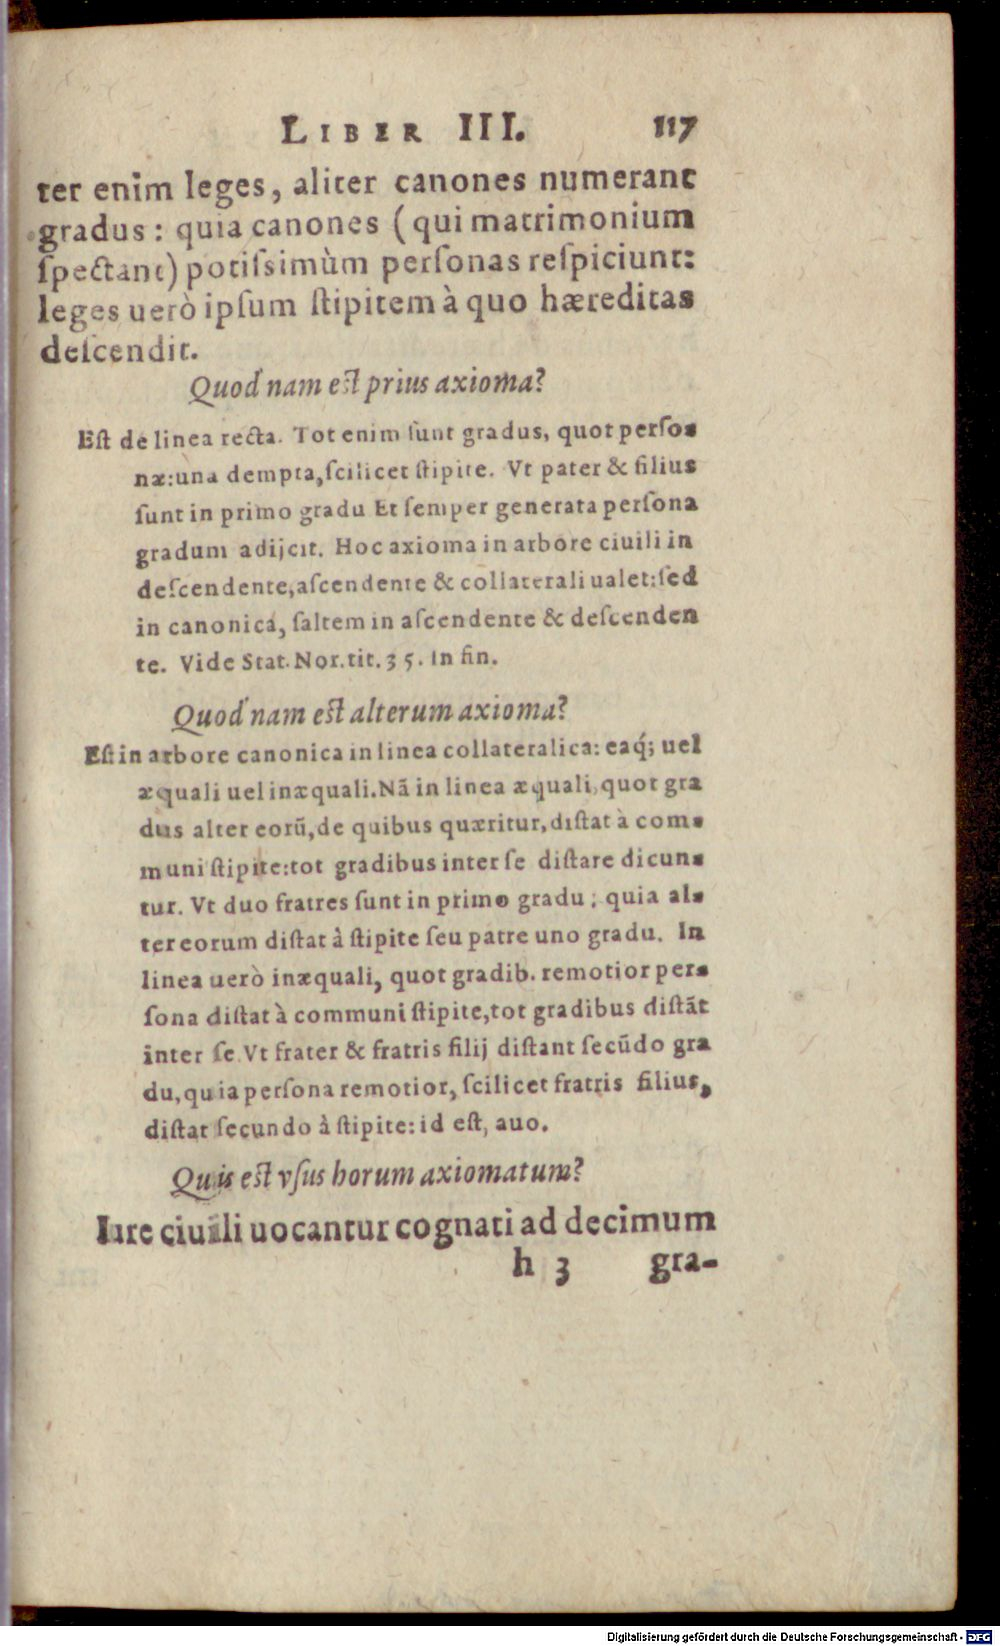 LIBER III. 117
ter enim leges, aliter canones numerant
gradus: quia canones (qui matrimonium
ſpectant) potiſsimùm perſonas reſpiciunt:
leges uerò ipſum ſtipitem à quo hæreditas
deſcendit.
Quod nam eſt prius axioma?
Eſt de linea recta. Tot enim ſunt gradus, quot perſo-
næ: una dempta, ſcilicet ſtipite. Vt pater & filius
ſunt in primo gradu Et ſemper generata perſona
gradum adijcit. Hoc axioma in arbore ciuili in
deſcendente, aſcendente & collaterali ualet: ſed
in canonica, ſaltem in aſcendente & deſcenden
te. Vide Stat. Nor. tit. 35. In fin.
Quod nam eſt alterum axioma?
Eſt in arbore canonica in linea collateralica: eaq́; uel
æquali uel inæquali. Nã in linea æquali, quot gra
dus alter eorũ, de quibus quæritur, diſtat à com-
muni ſtipite: tot gradibus inter ſe diſtare dicun-
tur. Vt duo fratres ſunt in primo gradu: quia al-
ter eorum diſtat à ſtipite ſeu patre uno gradu. In
linea uerò inæquali, quot gradib. remotior per-
ſona diſtat à communi ſtipite, tot gradibus diſtãt
inter ſe. Vt frater & fratris filij diſtant ſecũdo gra
du, quia perſona remotior, ſcilicet fratris filius,
diſtat ſecundo à ſtipite: id eſt, auo.
Quis eſt vſus horum axiomatum?
Iure ciuili uocantur cognati ad decimum
h 3 gra-
Digitalisierung gefördert durch die Deutsche Forschungsgemeinschaft - DFG